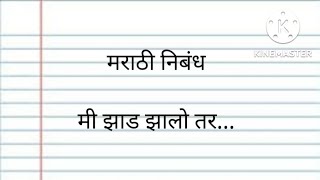 KINEMASTER
मराठी निबंध
मी झाड झालो तर...